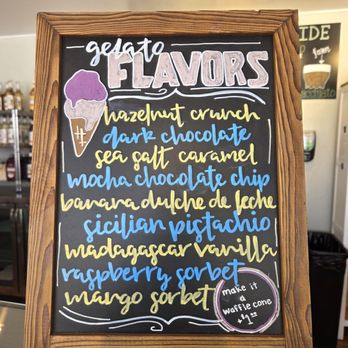 gelato
FLAVORS
hazelnut crunch
dark chocolate
sea salt caramel
mocha chocolate chip
banana dulche de leche
sicilian pistachio
madagascar vanilla
raspberry sorbet
mango sorbet
make it
a
waffle cone
+$1.00
IDE